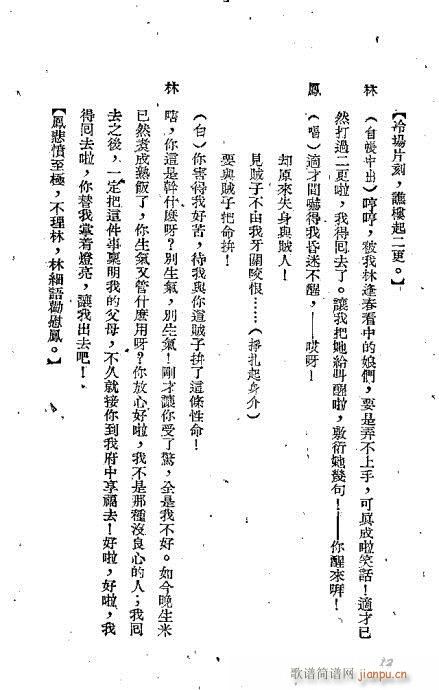 【冷場片刻，譙樓起二更。】
林　（自帳中出）哼哼，被我林逢春看中的娘們，要是弄不上手，可眞成啦笑話！適才已
然打過二更啦，我得回去了。讓我把她給叫醒啦，敷衍她幾句！——你醒來啊！
鳳　（唱）適才間嚇得我昏迷不醒，——哎呀！
却原來失身與賊人！
見賊子不由我牙關咬恨……（掙扎起身介）
要與賊子把命拚！
（白）你害得我好苦，待我與你這賊子拚了這條性命！
林　嗐，你這是幹什麼呀？別生氣，別生氣！剛才讓你受了驚，全是我不好。如今晚生米
已然煑成熟飯了，你生氣又管什麼用呀？你放心好啦，我不是那種沒良心的人；我回
去之後，一定把這件事稟明我的父母，不久就接你到我府中享福去！好啦，好啦，我
得回去啦，你替我掌着燈亮，讓我出去吧！
【鳳悲憤至極，不理林，林細語勸慰鳳。】
12
歌谱简谱网
jianpu.cn